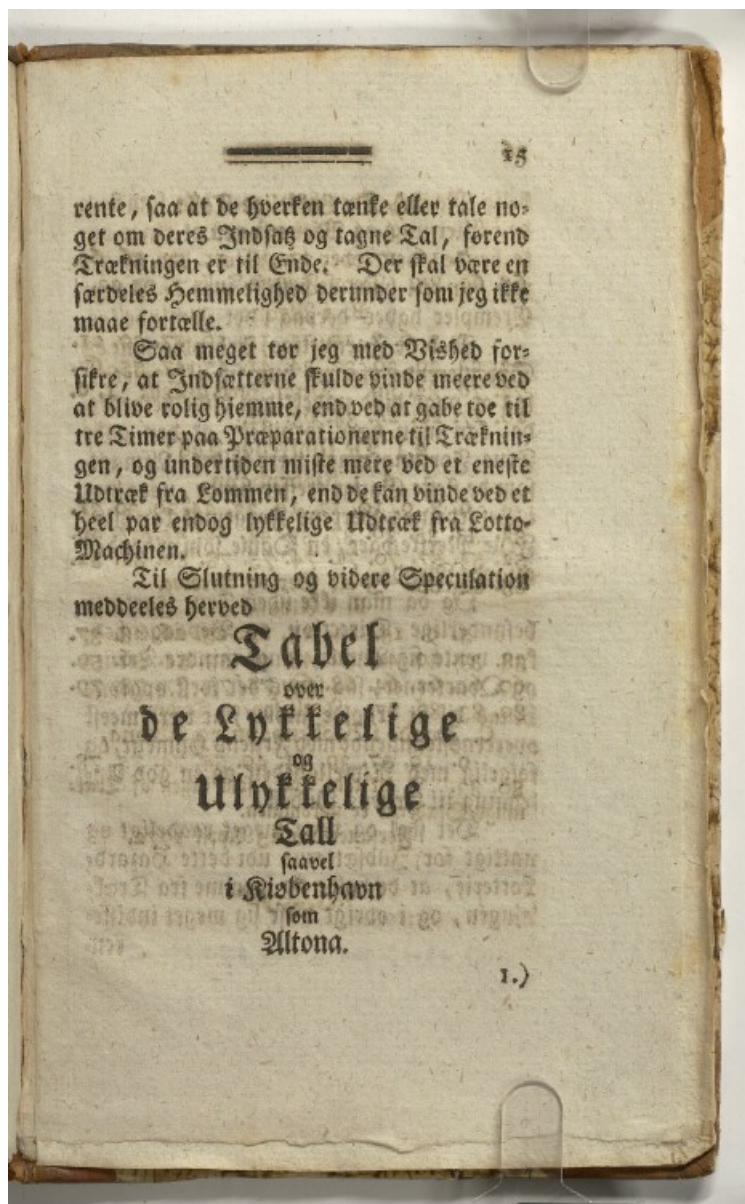 15
rente, saa at de hverken tænke eller tale no-
get om deres Indsatz og tagne Tal, førend
Trækningen er til Ende. Der skal være en
særdeles Hemmelighed derunder som jeg ikke
maae fortælle.
Saa meget tør jeg med Vished for-
sikre, at Indsætterne skulde vinde meere ved
at blive rolig hiemme, end ved at gabe toe til
tre Timer paa Præparationerne til Træknin-
gen, og undertiden miste mere ved et eneste
Udtræk fra Lommen, end de kan vinde ved et
heel par endog lykkelige Udtræk fra Lotto-
Machinen.
Til Slutning og videre Speculation
meddeeles herved
Tabel
over
de Lykkelige
og
Ulykkelige
Tall
saavel
i Kiøbenhavn
som
Altona.
1.)